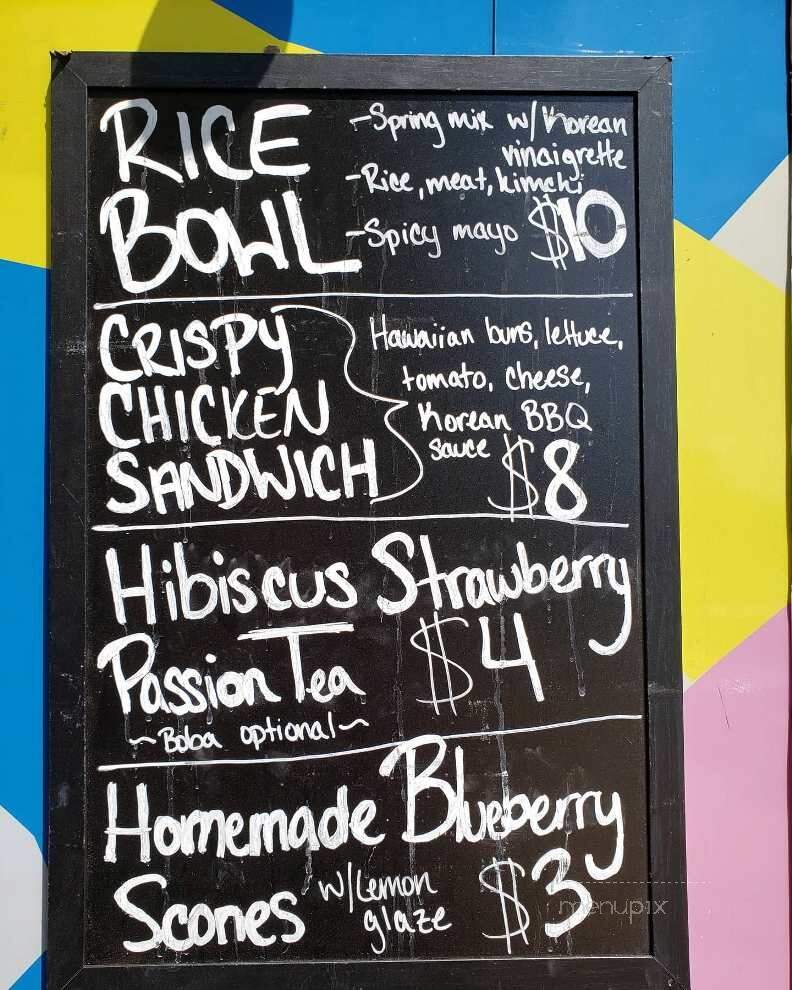 RICE
BOWL
-Spring mix w/ Korean
vinaigrette
-Rice, meat, kimchi
-Spicy mayo $10
CRISPY
CHICKEN
SANDWICH
Hawaiian buns, lettuce,
tomato, cheese,
Korean BBQ
sauce $8
Hibiscus Strawberry
Passion Tea $4
~Boba optional~
Homemade Blueberry
Scones w/Lemon
glaze $3
menupix